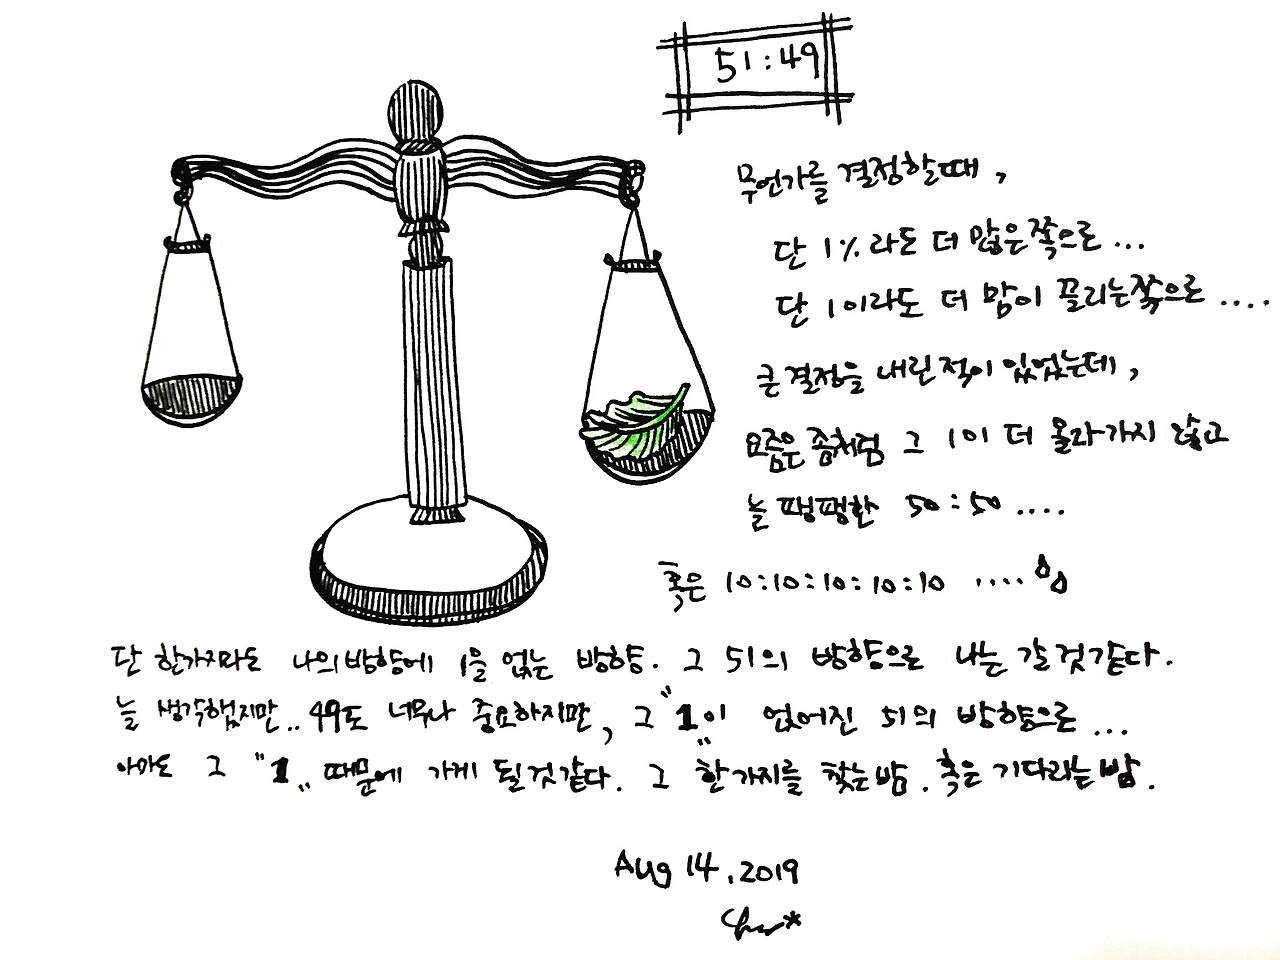 51:49
무언가를 결정할때,
단 1%라도 더 많은쪽으로...
단 1이라도 더 맘이 끌리는쪽으로....
큰 결정을 내린적이 있었는데,
요즘은 좀처럼 그 1이 더 올라가지 않고
늘 팽팽한 50:50....
혹은 10:10:10:10:10 ....
단 한가지라도 나의 방향에 1을 얹는 방향. 그 51의 방향으로 나는 갈것같다.
늘 생각했지만.. 49도 너무나 중요하지만, 그 "1"이 얹어진 51의 방향으로...
아마도 그 "1" 때문에 가게 될것같다. 그 "한가지를 찾는밤. 혹은 기다리는밤.
Aug 14, 2019